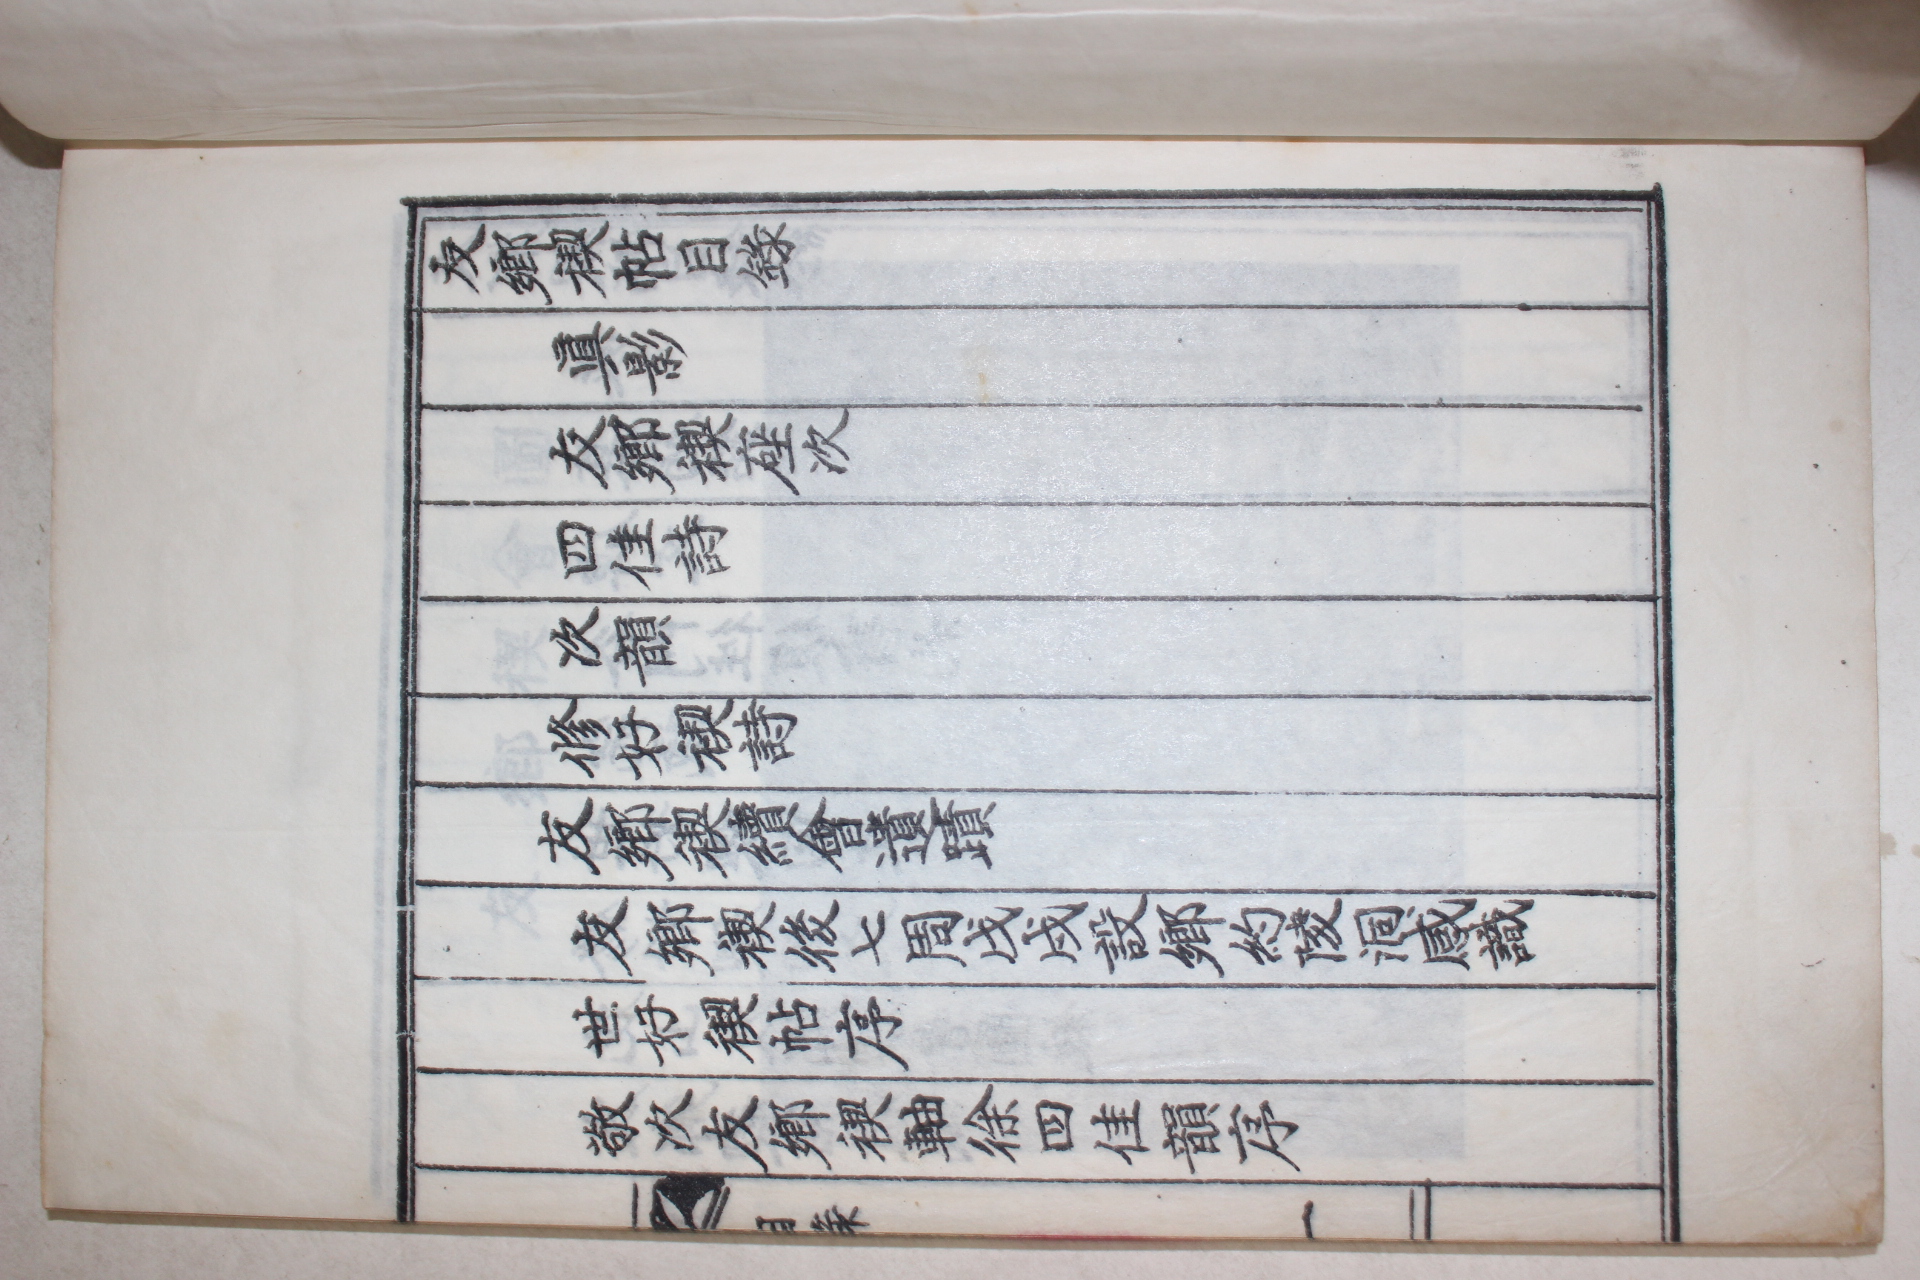 友鄉稧帖目錄
眞影
友鄉稧座次
四佳詩
次韻
修好稧詩
友鄉稧續會遺蹟
友鄉稧後七周戊戌設鄉約陵洞感識
世好稧帖序
敬次友鄉稧軸徐四佳韻序
目錄
一